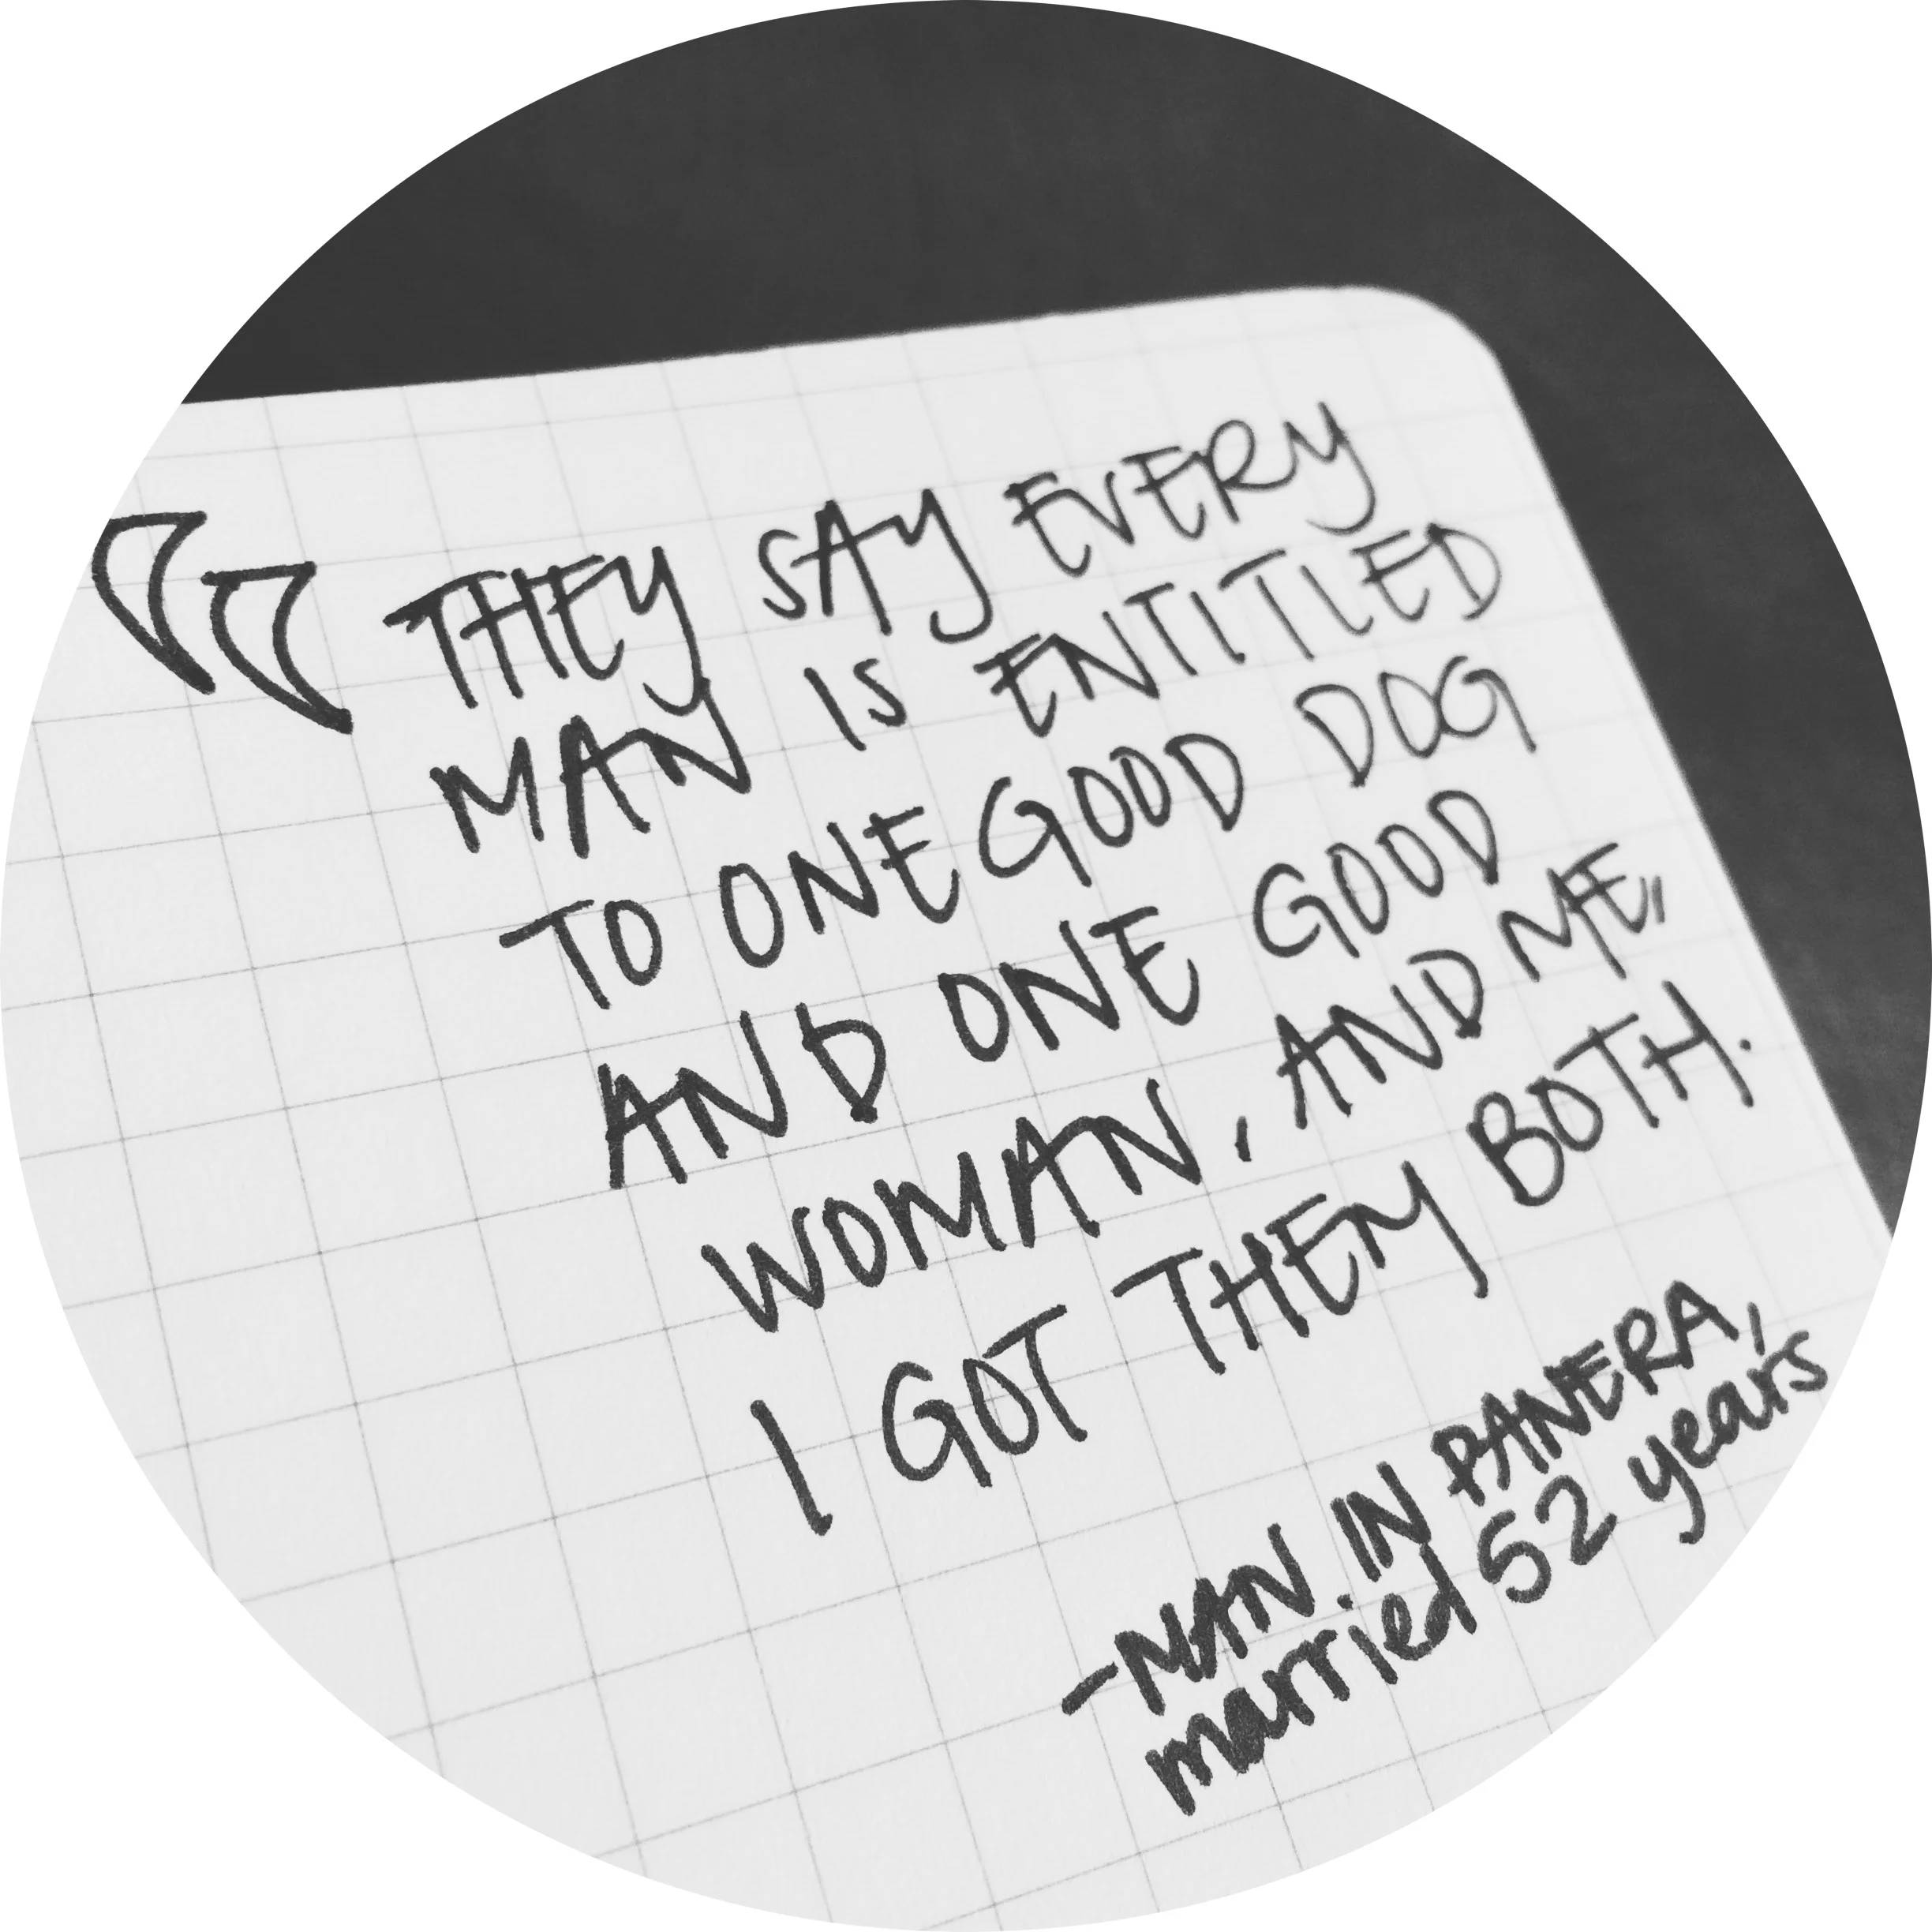 “ THEY SAY EVERY
MAN IS ENTITLED
TO ONE GOOD DOG
AND ONE GOOD
WOMAN, AND ME,
I GOT THEM BOTH.
-MAN IN PANERA,
married 52 years